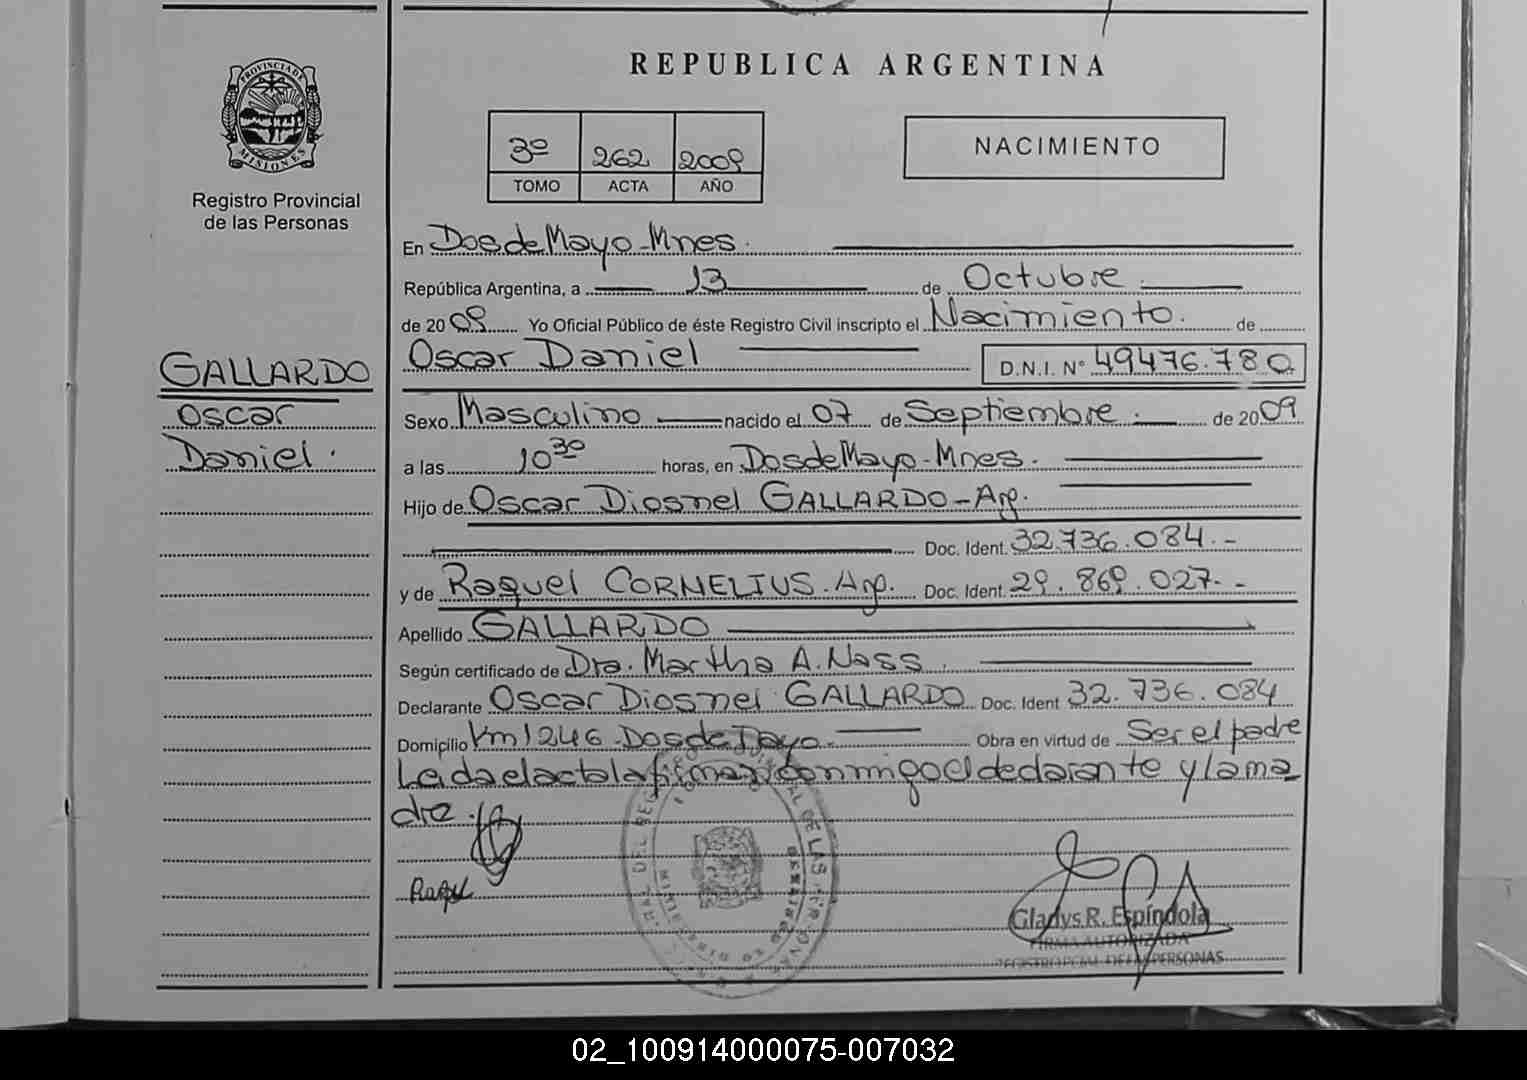 PROVINCIA DE
MISIONES
Registro Provincial
de las Personas
GALLARDO
Oscar
Daniel.
REPUBLICA ARGENTINA
3º 262 2009
TOMO ACTA AÑO
NACIMIENTO
En Dos de Mayo - Mnes.
República Argentina, a 13 de Octubre.
de 2009 Yo Oficial Público de éste Registro Civil inscripto el Nacimiento. de
Oscar Daniel D.N.I. N° 49476.780
Sexo Masculino nacido el 07 de Septiembre. de 2009
a las 10 30 horas, en Dos de Mayo - Mnes.
Hijo de Oscar Diosnel GALLARDO - Arg.
Doc. Ident. 32.736.084.-
y de Raquel CORNELIUS. Arg. Doc. Ident. 29.869.027.-
Apellido GALLARDO
Según certificado de Dra. Martha A. Nass.
Declarante Oscar Diosnel GALLARDO Doc. Ident 32.736.084
Domicilio Km 1246 - Dos de Mayo. Obra en virtud de Ser el padre
Leida el acta la firman conmigo el declarante y la ma
dre.
Raquel
Gladys R. Espíndola
FIRMA AUTORIZADA
REGISTRO PCIAL. DE LAS PERSONAS
02_100914000075-007032